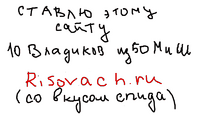 ставлю этому
сайту
10 Владиков из 50 Миш
Risovach.ru
(со вкусом спида)